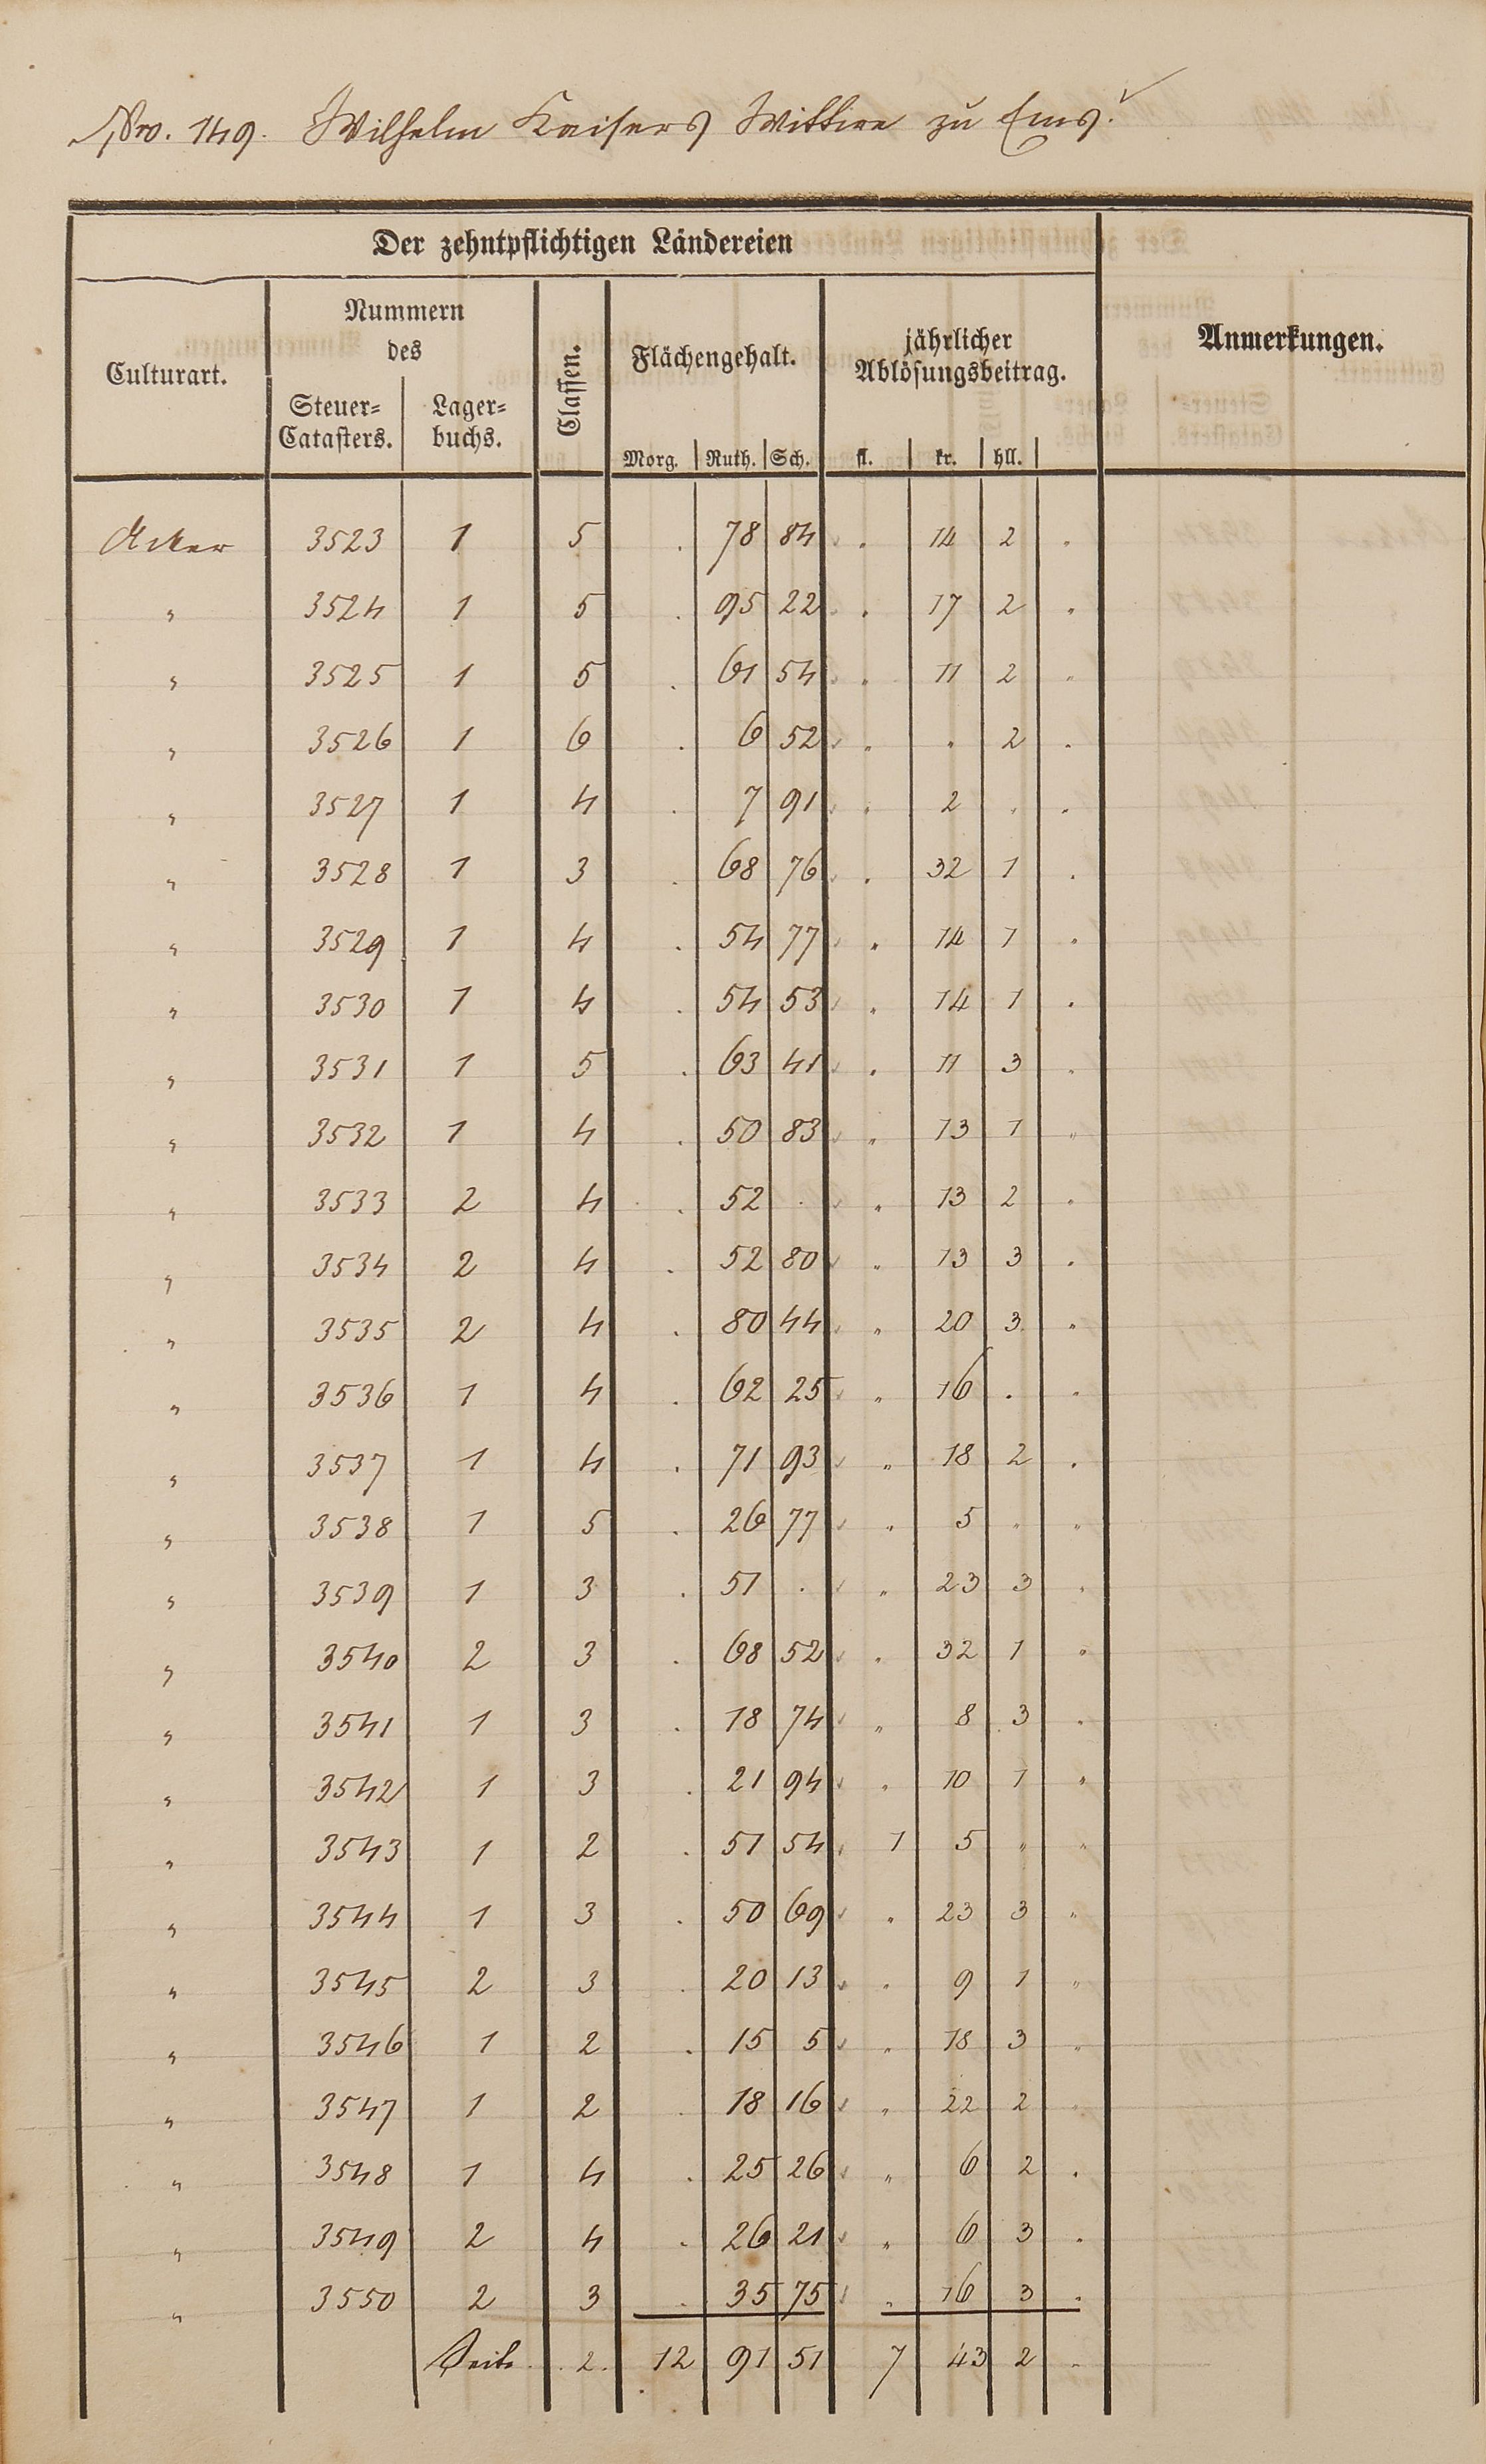 Nro. 149. Wilhelm Kaisers Wittwe zu Ems.
Der zehntpflichtigen Ländereien
Culturart. Nummern des Steuer-Catasters. Lager-buchs. Classen. Flächengehalt. jährlicher Ablösungsbeitrag. Anmerkungen.
Morg. Ruth. Sch. fl. kr. hll.
Acker 3523 1 5 . 78 84 . 14 2 .
" 3524 1 5 . 95 22 . 17 2 "
" 3525 1 5 . 61 54 . 11 2 "
" 3526 1 6 . 6 52 " " 2 .
" 3527 1 4 . 7 91 " 2 . .
" 3528 1 3 . 68 76 . 32 1 .
" 3529 1 4 . 54 77 " 14 1 "
" 3530 1 4 . 54 53 " 14 1 .
" 3531 1 5 . 63 41 . 11 3 .
" 3532 1 4 . 50 83 " 13 1 "
" 3533 2 4 . 52 . " 13 2 "
" 3534 2 4 . 52 80 " 13 3 .
" 3535 2 4 . 80 44 " 20 3 "
" 3536 1 4 . 62 25 " 16 . "
" 3537 1 4 . 71 93 " 18 2 .
" 3538 1 5 . 26 77 " 5 " "
" 3539 1 3 . 51 . " 23 3 "
" 3540 2 3 . 68 52 " 32 1 "
" 3541 1 3 . 18 74 " 8 3 "
" 3542 1 3 . 21 94 " 10 1 "
" 3543 1 2 . 51 54 1 5 " "
" 3544 1 3 . 50 69 " 23 3 "
" 3545 2 3 . 20 13 " 9 1 "
" 3546 1 2 . 15 5 " 18 3 "
" 3547 1 2 . 18 16 " 22 2 "
" 3548 1 4 . 25 26 " 6 2 .
" 3549 2 4 . 26 21 " 6 3 "
" 3550 2 3 . 35 75 " 16 3 .
Seite 2. 12 91 51 7 43 2 "